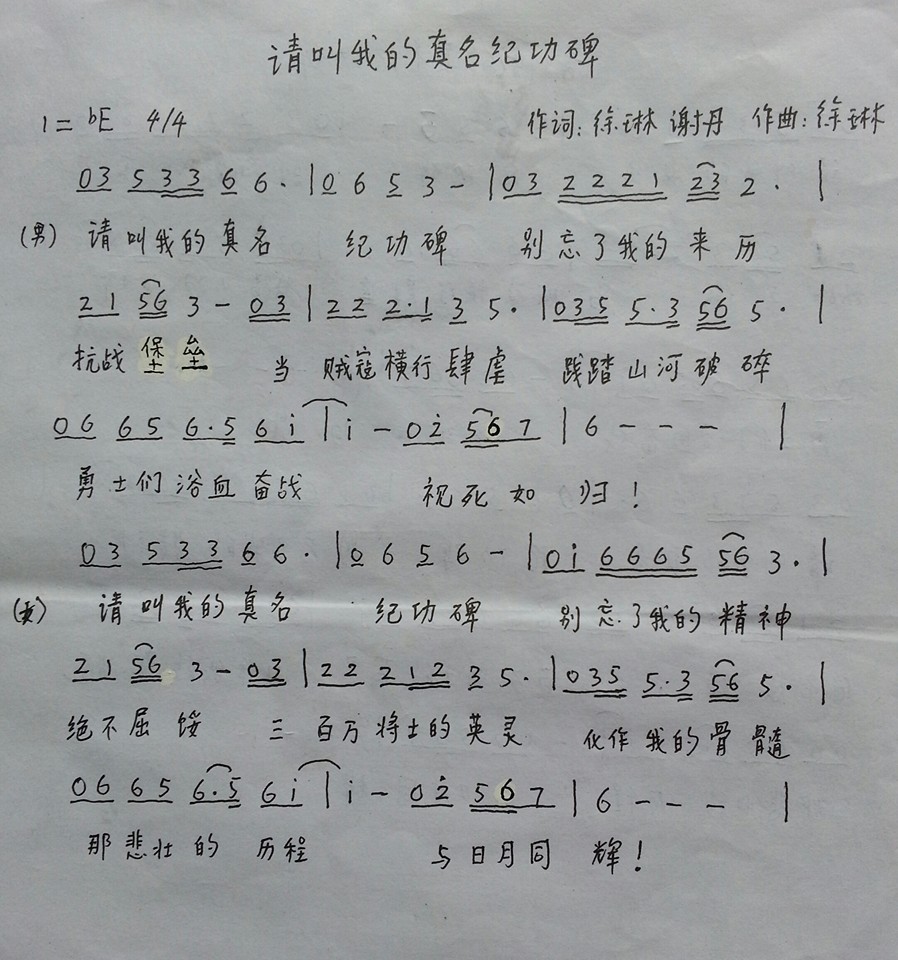 请叫我的真名纪功碑
1=bE 4/4 作词:徐琳 谢丹 作曲:徐琳
03 533 6 6· |0 6 5 3 - |03 2221 23 2· |
(男) 请叫我的真名 纪功碑 别忘了我的来历
21 56 3 - 03 |22 2·1 3 5· |035 5·3 56 5· |
抗战堡垒 当 贼寇横行肆虐 践踏山河破碎
06 65 6·5 6i |i - 02̇ 567 |6 - - - |
勇士们浴血奋战 视死如归!
03 533 6 6· |0 6 5 6 - |0i 6665 56 3· |
(女) 请叫我的真名 纪功碑 别忘了我的精神
21 56 3 - 03 |22 212 3 5· |035 5·3 56 5· |
绝不屈馁 三百万将士的英灵 化作我的骨髓
06 65 6·5 6i |i - 02̇ 567 |6 - - - |
那悲壮的历程 与日月同辉!